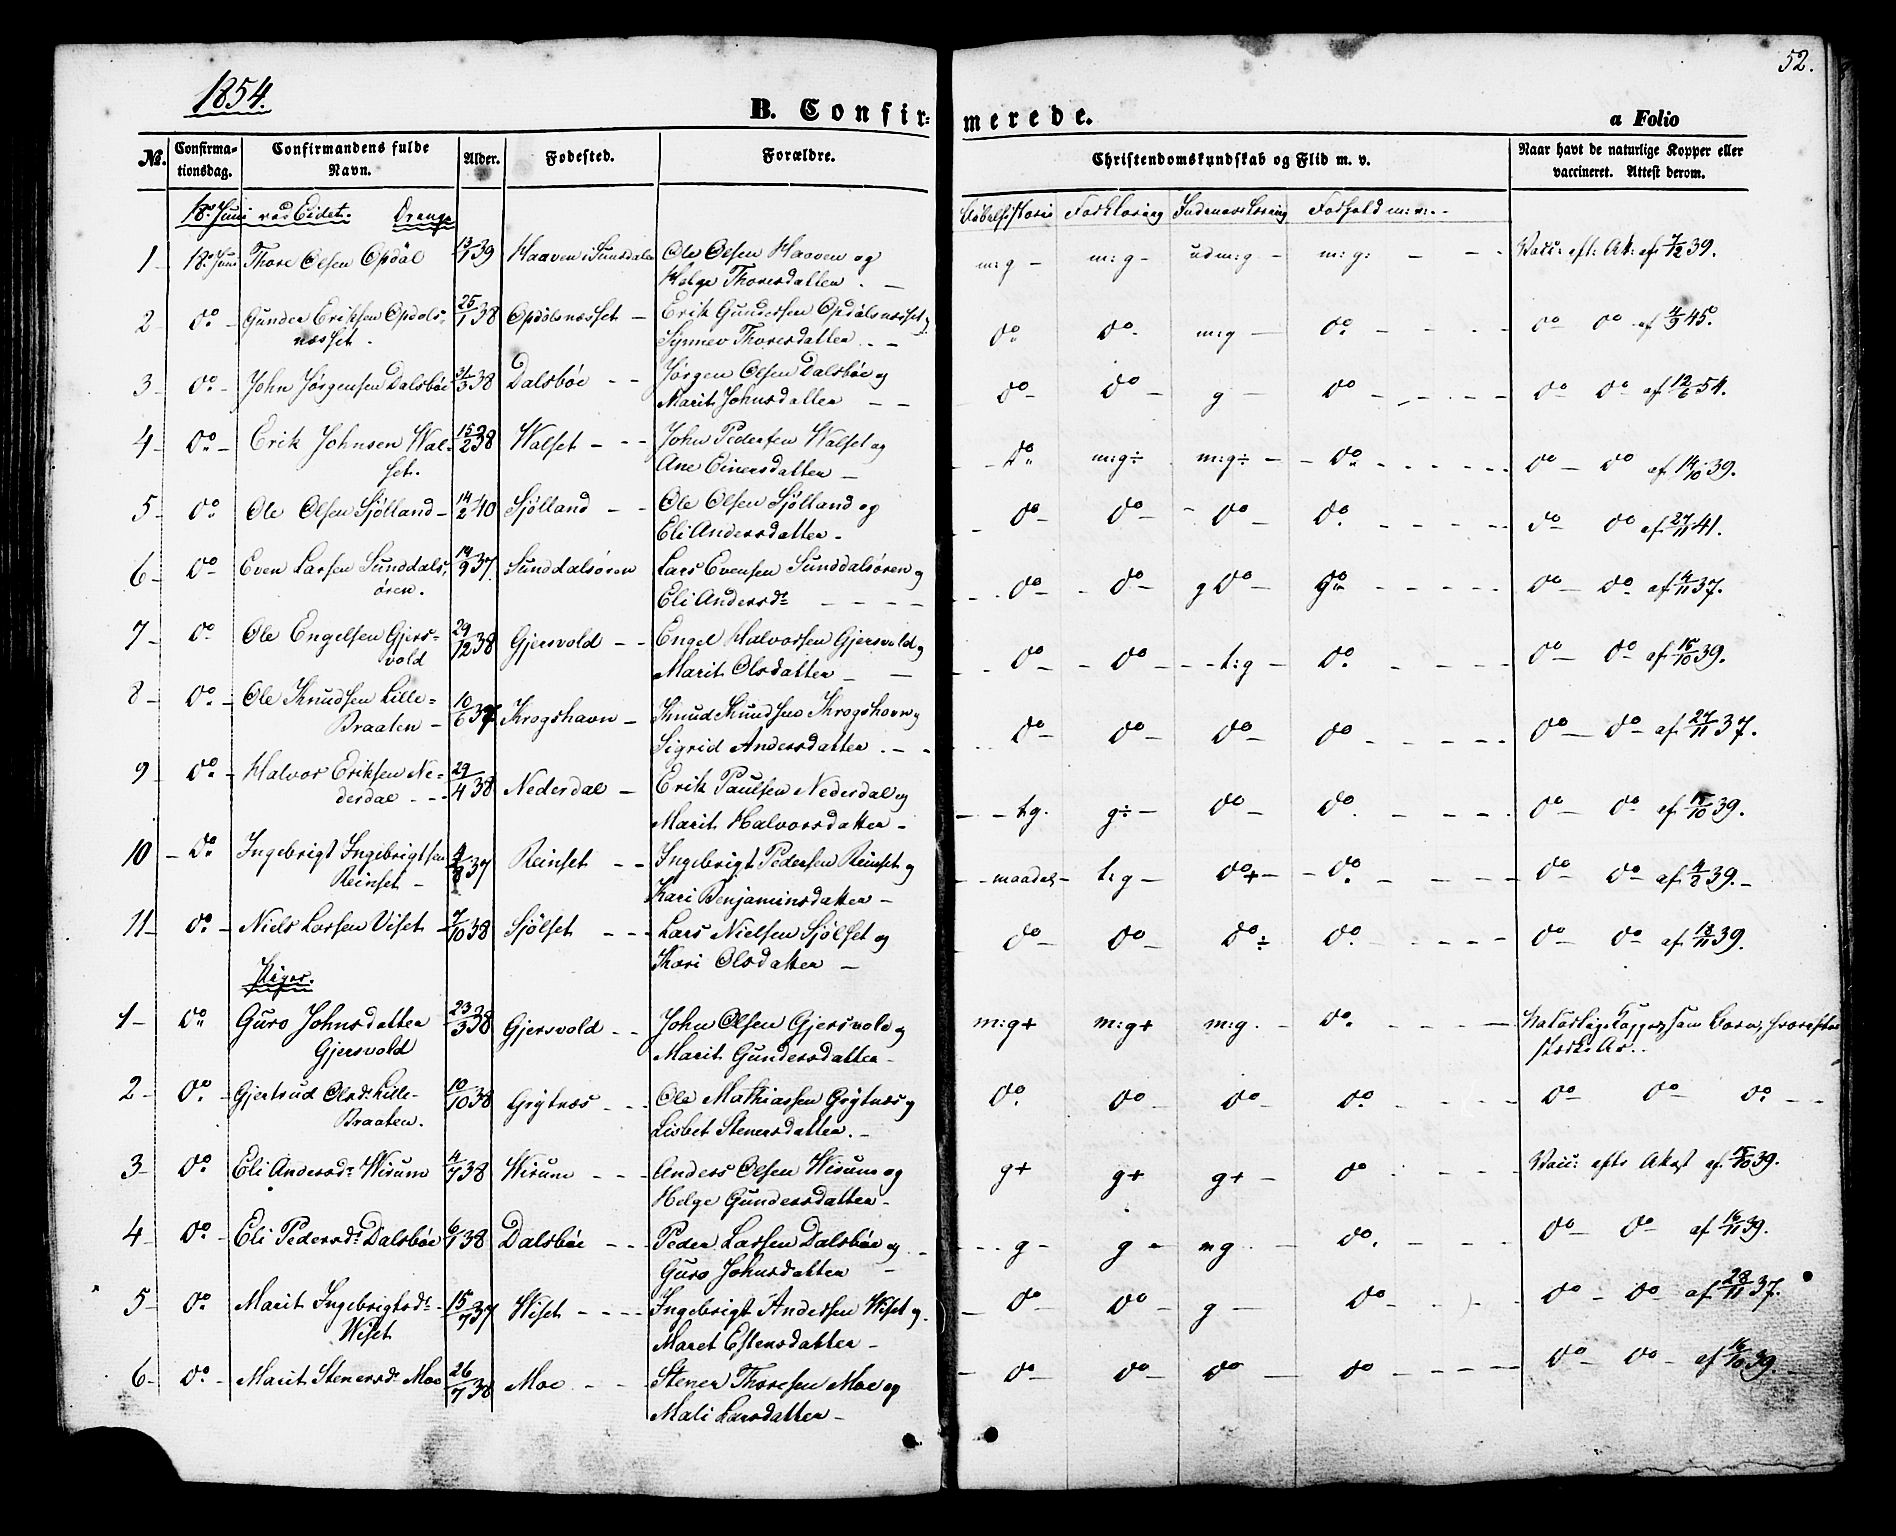 1854.
52.
B. Confir-
merede.
a Folio
No.
Confirma-
tionsdag.
Confirmandens fulde
Navn.
Alder.
Fødested.
Forældre.
Christendomskundskab og Flid m. v.
Naar havt de naturlige Kopper eller
vaccineret. Attest derom.
18. Juni ved Eidet. Drenge
Bibelhistorie Forklaring Indenadslæsning Forhold m:v:
1 18. Juni Thore Olsen Opdöl 13/7 39 Haaven i Sunsdalen Ole Olsen Haaven og m:g - m:g - udm:g - m:g: - - Vacc: eft: At: af 7/12 39.
Helge Thoresdatter. -
2 do - Gunder Eriksen Opdöls- 25/1 38 Opdölsnæsset - Erik Gundersen Opdölsnæsset og do do - m:g - do - - - do do af 4/9 45.
næsset. Synnev Thoresdatter. - -
3 do - John Jörgensen Dalsböe 31/3 38 Dalsböe - - Jörgen Olsen Dalsböe og do - do - g - do - - - do do af 12/6 54.
Marit Johnsdatter - -
4 do - Erik Johnsen Wal- 15/2 38 Walset - - John Pedersen Walset og - do m:g÷ m:g÷ - - do - - - do - do af 14/10 39.
set. Ane Einersdatter -
5 do Ole Olsen Sjölland - 14/2 40 Sjölland - - Ole Olsen Sjölland og - do - do - - do - do - - - do do af 27/11 41.
Eli Andersdatter -
6 do - Even Larsen Sunddals- 14/9 37. Sunddalsören Lars Evensen Sunddalsören og - do - - do - g do - do - - - do - do - af 4/11 37.
ören. Eli Andersdr - - - -
7 do Ole Engelsen Gjers- 29/12 38 Gjersvold - - Engel Halvorsen Gjersvold og - do - - do - - - t:g - do - - - do - do - af 15/10 39.
vold Marit Olsdatter - -
8 - do - Ole Knudsen Lille- 10/6 37 Krogshavn - Knud Knudsen Krogshavn og do - do - do - do - - - do - do - af 27/11 37.
Braaten - Sigrid Andersdatter. - -
9 do - Halvor Eriksen Ne- 29/4 38 Nederdal - Erik Paulsen Nederdal og - - tg. g÷ - do - do - - - do - do - af 15/10 39.
derdal - - Marit Halvorsdatter -
10 - do Ingebrigt Ingebrigtsen 4/8 37 Reinset - - Ingebrigt Pedersen Reinset og - - maadel - t:g - do+ - - do - - - do - do - af 4/8 39. -
Reinset - Kari Benjaminsdatter -
11 - do - Niels Larsen Viset - 7/10 38 Sjölset - - Lars Nielsen Sjölset og do - do - do÷ do - - - do - do - af 18/11 39.
Kari Olsdatter -
Piger.
1 - do Guro Johnsdatter 23/3 38 Gjersvold - - John Olsen Gjersvold og m:g+ m:g+ m:g - do - - - Naturlige Kopper som Barn,
Gjersvold Marit Gundersdatter -
2 - do - Gjertrud Olsdr Lille- 10/10 38 Grytnæs - - Ole Mathiassen Grytnæs og do do - do - do - - - do - do - do - -
Braaten. Lisbet Stenersdatter. -
3 - do Eli Andersdr Wirum 4/7 38 Wirum - - - Anders Olsen Wirum og g+ g+ g+ - do - - - Vacc: eftr Atest af 15/10 39.
Helge Gundersdatter -
4 do - Eli Pedersdr Dalsböe 6/1 38 Dalsböe - - Peder Larsen Dalsböe og - - g - g - mg - - do - - - do - do - af 16/11 39.
Guro Johnsdatter -
5 - do Marit Ingebrigtsdr - 15/7 37 Wiset - - - Ingebrigt Andersen Wiset og - do - do - g - do - - - do - do - af 28/11 37.
Wiset Maret Estensdatter -
6 - do - Marit Stenersdr Moe 26/7 38 Moe - - - Stener Thoresen Moe og - do - do - do - do - - - do - do - af 16/10 39.
Mali Larsdatter -